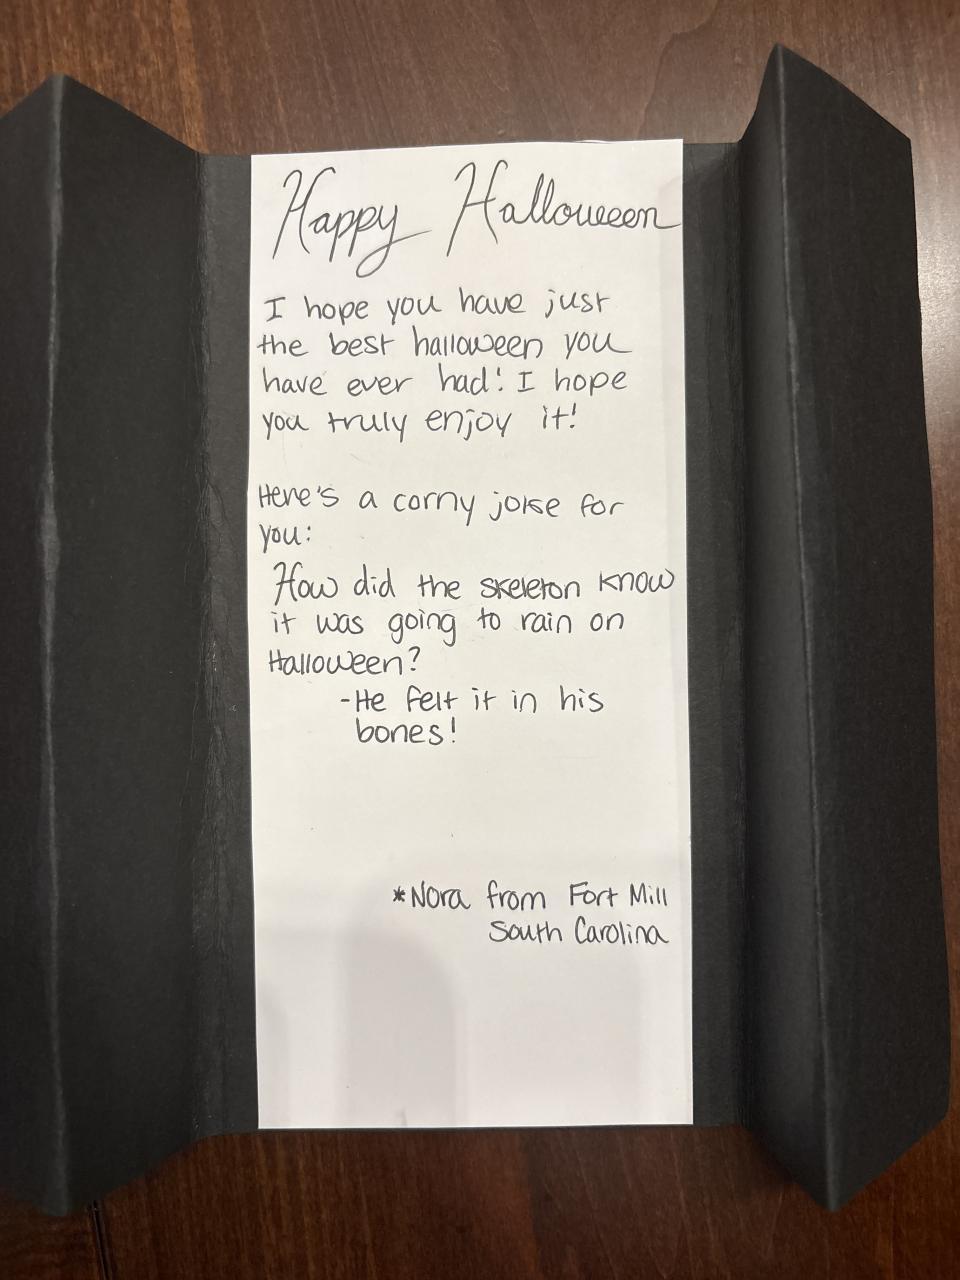 Happy Halloween
I hope you have just
the best halloween you
have ever had! I hope
you truly enjoy it!
Here's a corny joke for
you:
How did the skeleton know
it was going to rain on
Halloween?
-He felt it in his
bones!
*Nora from Fort Mill
South Carolina